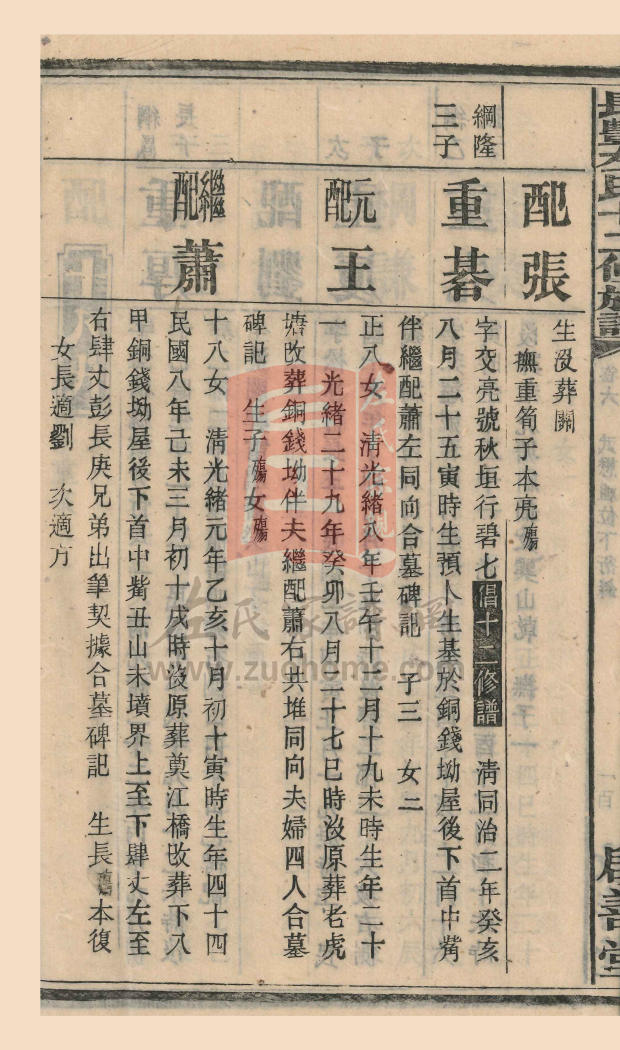 配張
生沒葬闕
撫重筍子本亮殤
綱隆
三子
重碁
字交亮號秋垣行碧七倡十二修譜 清同治二年癸亥
八月二十五寅時生預卜生基於銅錢坳屋後下首中觜
伴繼配蕭左同向合墓碑記 子三 女二
元配王
正八女 清光緒八年壬午十二月十九未時生年二十
一 光緒二十九年癸卯八月二十七巳時沒原葬老虎
塘改葬銅錢坳伴夫繼配蕭右共堆同向夫婦四人合墓
碑記 生子殤女殤
繼配蕭
十八女 清光緒元年乙亥十月初十寅時生年四十四
民國八年己未三月初十戌時沒原葬奠江橋改葬下入
甲銅錢坳屋後下首中觜丑山未墳界上至下肆丈左至
右肆丈彭長庚兄弟出筆契據合墓碑記 生長殤本復
女長適劉 次適方
左氏家譜網
www.zuohome.com